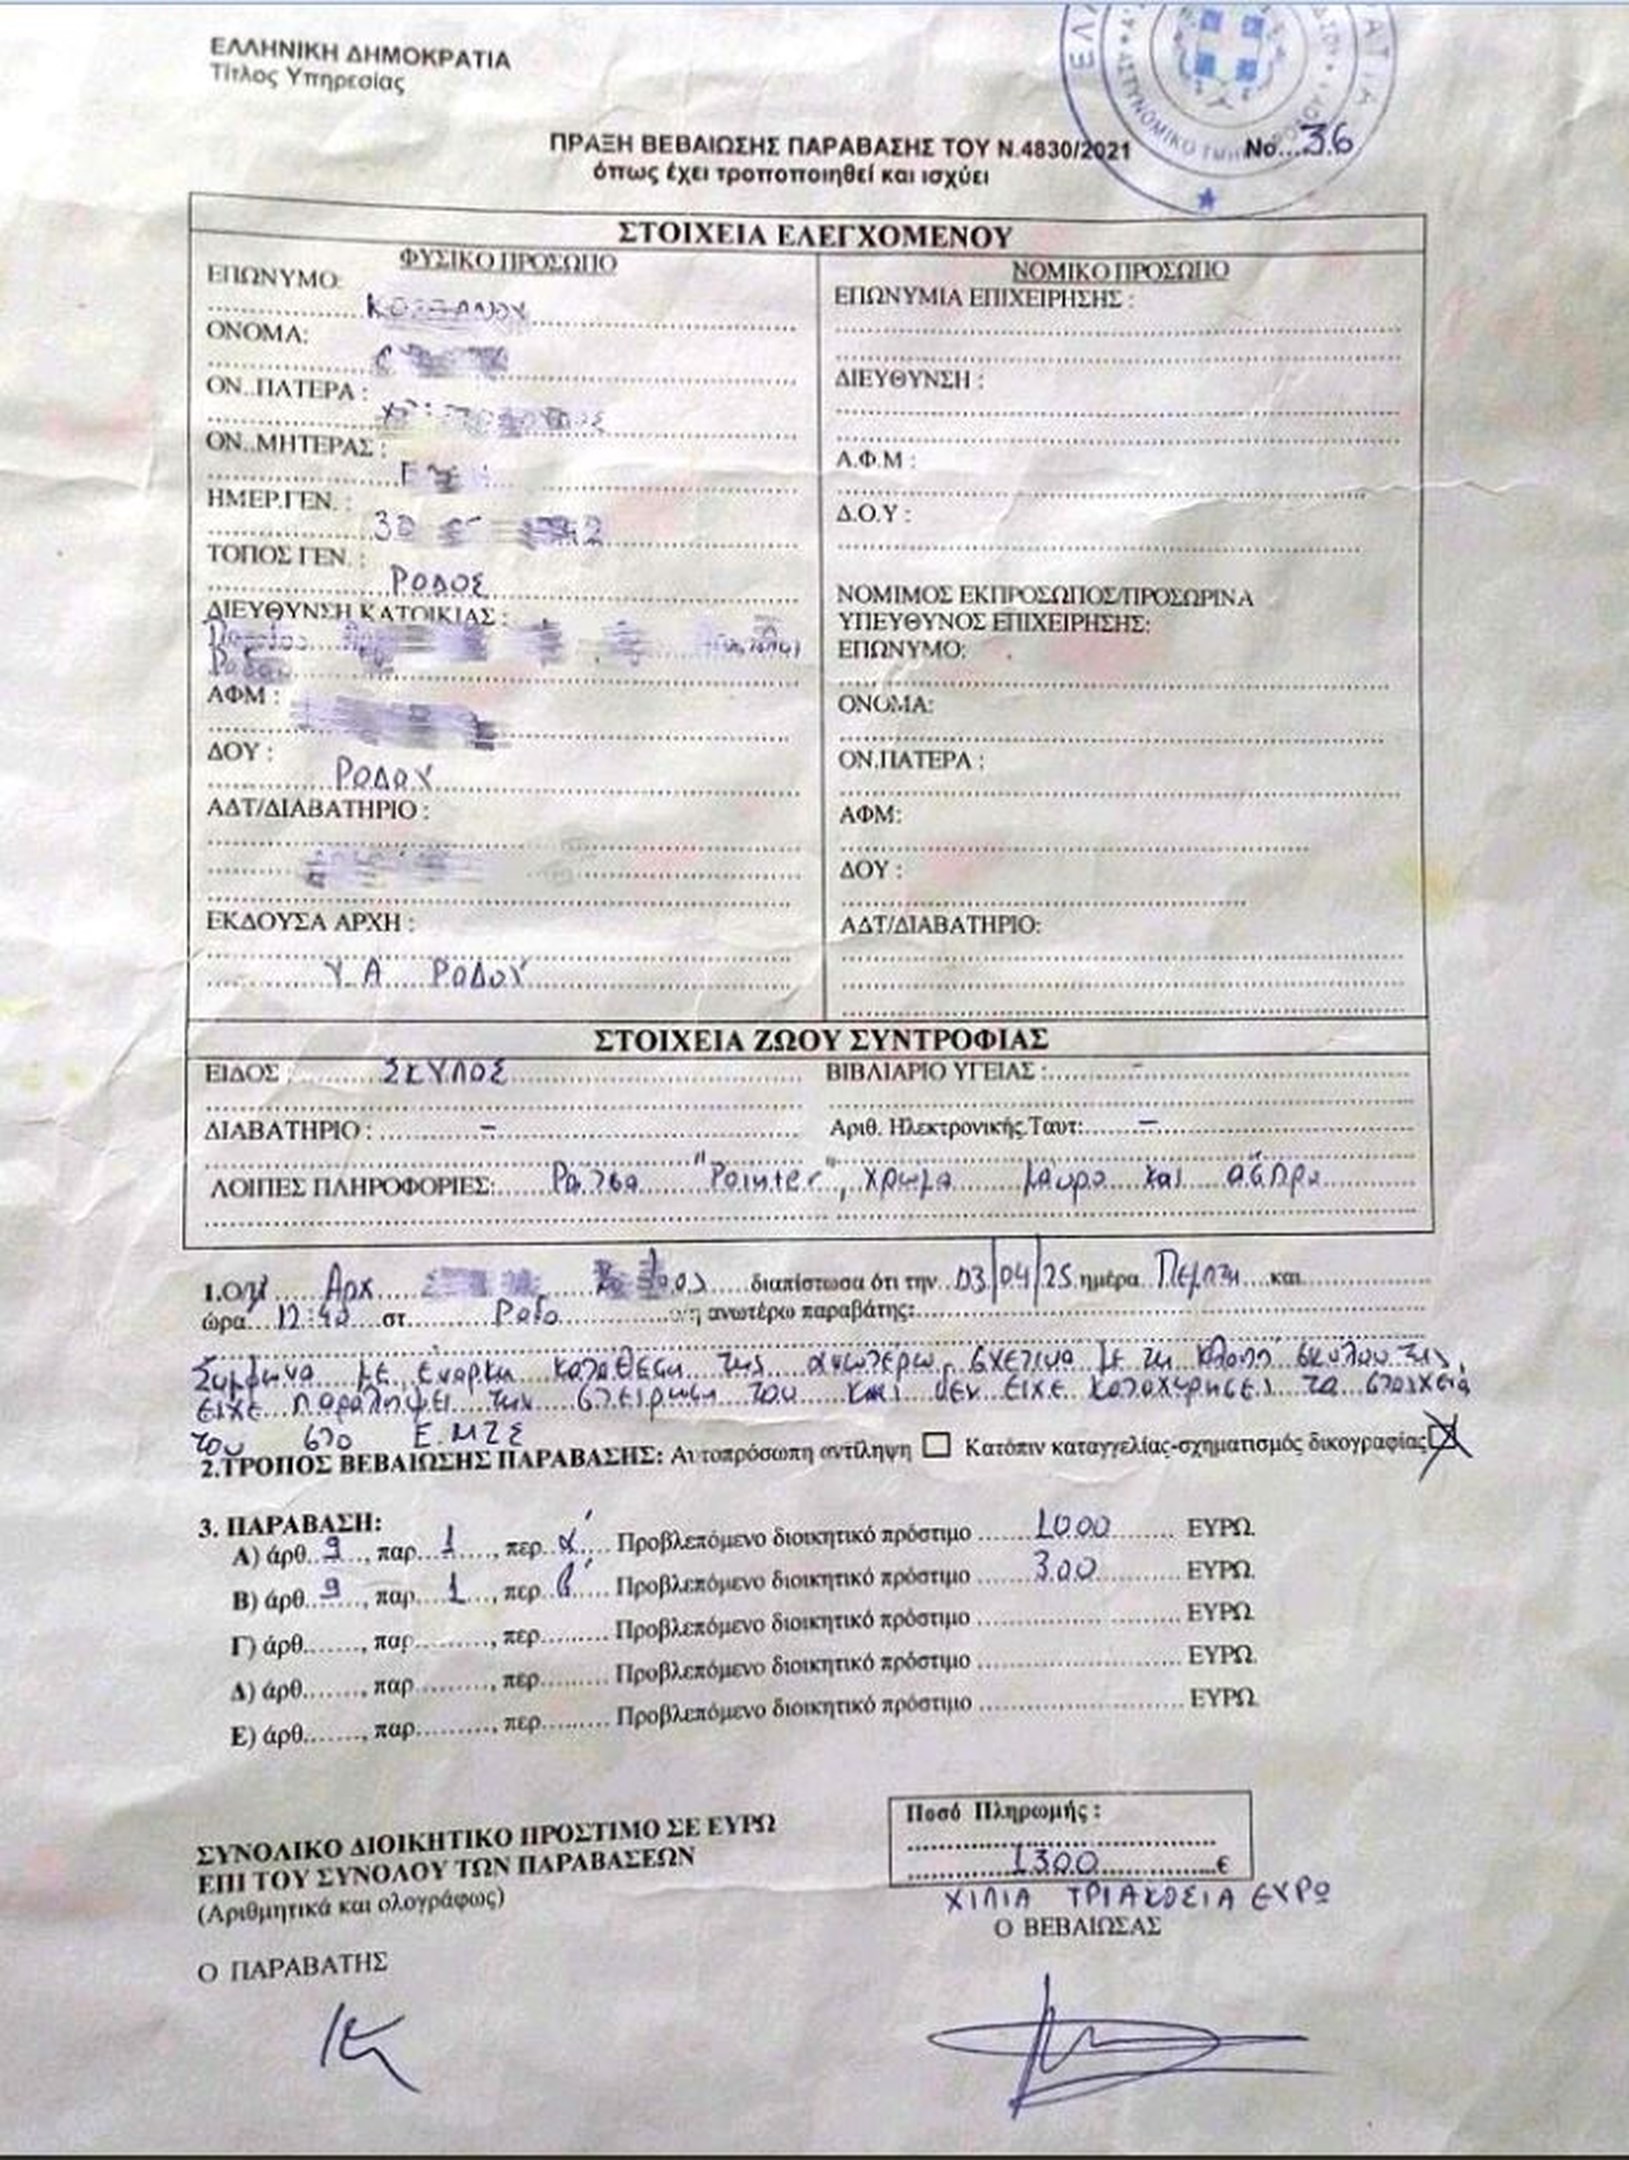 ΕΛΛΗΝΙΚΗ ΔΗΜΟΚΡΑΤΙΑ
Τίτλος Υπηρεσίας
ΠΡΑΞΗ ΒΕΒΑΙΩΣΗΣ ΠΑΡΑΒΑΣΗΣ ΤΟΥ Ν.4830/2021
Νο....36
όπως έχει τροποποιηθεί και ισχύει
ΣΤΟΙΧΕΙΑ ΕΛΕΓΧΟΜΕΝΟΥ
ΦΥΣΙΚΟ ΠΡΟΣΩΠΟ
ΕΠΩΝΥΜΟ:
ΟΝΟΜΑ:
ΟΝ..ΠΑΤΕΡΑ :
ΟΝ..ΜΗΤΕΡΑΣ :
ΗΜΕΡ.ΓΕΝ. :
30
ΤΟΠΟΣ ΓΕΝ. :
ΡΟΔΟΣ
ΔΙΕΥΘΥΝΣΗ ΚΑΤΟΙΚΙΑΣ :
ΑΦΜ :
ΔΟΥ :
ΡΟΔΟΥ
ΑΔΤ/ΔΙΑΒΑΤΗΡΙΟ :
ΕΚΔΟΥΣΑ ΑΡΧΗ :
Υ.Α ΡΟΔΟΥ
ΝΟΜΙΚΟ ΠΡΟΣΩΠΟ
ΕΠΩΝΥΜΙΑ ΕΠΙΧΕΙΡΗΣΗΣ :
ΔΙΕΥΘΥΝΣΗ :
Α.Φ.Μ :
Δ.Ο.Υ :
ΝΟΜΙΜΟΣ ΕΚΠΡΟΣΩΠΟΣ/ΠΡΟΣΩΡΙΝΑ
ΥΠΕΥΘΥΝΟΣ ΕΠΙΧΕΙΡΗΣΗΣ:
ΕΠΩΝΥΜΟ:
ΟΝΟΜΑ:
ΟΝ.ΠΑΤΕΡΑ :
ΑΦΜ:
ΔΟΥ :
ΑΔΤ/ΔΙΑΒΑΤΗΡΙΟ:
ΣΤΟΙΧΕΙΑ ΖΩΟΥ ΣΥΝΤΡΟΦΙΑΣ
ΕΙΔΟΣ : ΣΚΥΛΟΣ ΒΙΒΛΙΑΡΙΟ ΥΓΕΙΑΣ : -
ΔΙΑΒΑΤΗΡΙΟ : - Αριθ. Ηλεκτρονικής.Ταυτ: -
ΛΟΙΠΕΣ ΠΛΗΡΟΦΟΡΙΕΣ: Ράτσα "Pointer", χρώμα μαύρο και άσπρο
1.Ο/Η Αρχ διαπίστωσα ότι την 03/04/25 ημέρα Πέμπτη και
ώρα 12:40 στ Ροδο ο/η ανωτέρω παραβάτης:
Σύμφωνα με ένορκη κατάθεση της ανωτέρω, σχετικά με τη κλοπή σκύλου της,
είχε παραλήψει την στείρωση του και δεν είχε καταχωρήσει τα στοιχεία
του στο Ε.ΜΖΣ
2.ΤΡΟΠΟΣ ΒΕΒΑΙΩΣΗΣ ΠΑΡΑΒΑΣΗΣ: Αυτοπρόσωπη αντίληψη Κατόπιν καταγγελίας-σχηματισμός δικογραφίας
3. ΠΑΡΑΒΑΣΗ:
Α) άρθ. 9 , παρ. 1 , περ. α' Προβλεπόμενο διοικητικό πρόστιμο 1000 ΕΥΡΩ.
Β) άρθ. 9 , παρ. 1 , περ. β' Προβλεπόμενο διοικητικό πρόστιμο 300 ΕΥΡΩ.
Γ) άρθ......., παρ.........., περ......... Προβλεπόμενο διοικητικό πρόστιμο ............ ΕΥΡΩ.
Δ) άρθ......., παρ.........., περ......... Προβλεπόμενο διοικητικό πρόστιμο ............ ΕΥΡΩ.
Ε) άρθ......., παρ.........., περ......... Προβλεπόμενο διοικητικό πρόστιμο ............ ΕΥΡΩ.
ΣΥΝΟΛΙΚΟ ΔΙΟΙΚΗΤΙΚΟ ΠΡΟΣΤΙΜΟ ΣΕ ΕΥΡΩ
ΕΠΙ ΤΟΥ ΣΥΝΟΛΟΥ ΤΩΝ ΠΑΡΑΒΑΣΕΩΝ
(Αριθμητικά και ολογράφως)
Ποσό Πληρωμής :
1300 €
ΧΙΛΙΑ ΤΡΙΑΚΟΣΙΑ ΕΥΡΩ
Ο ΒΕΒΑΙΩΣΑΣ
Ο ΠΑΡΑΒΑΤΗΣ